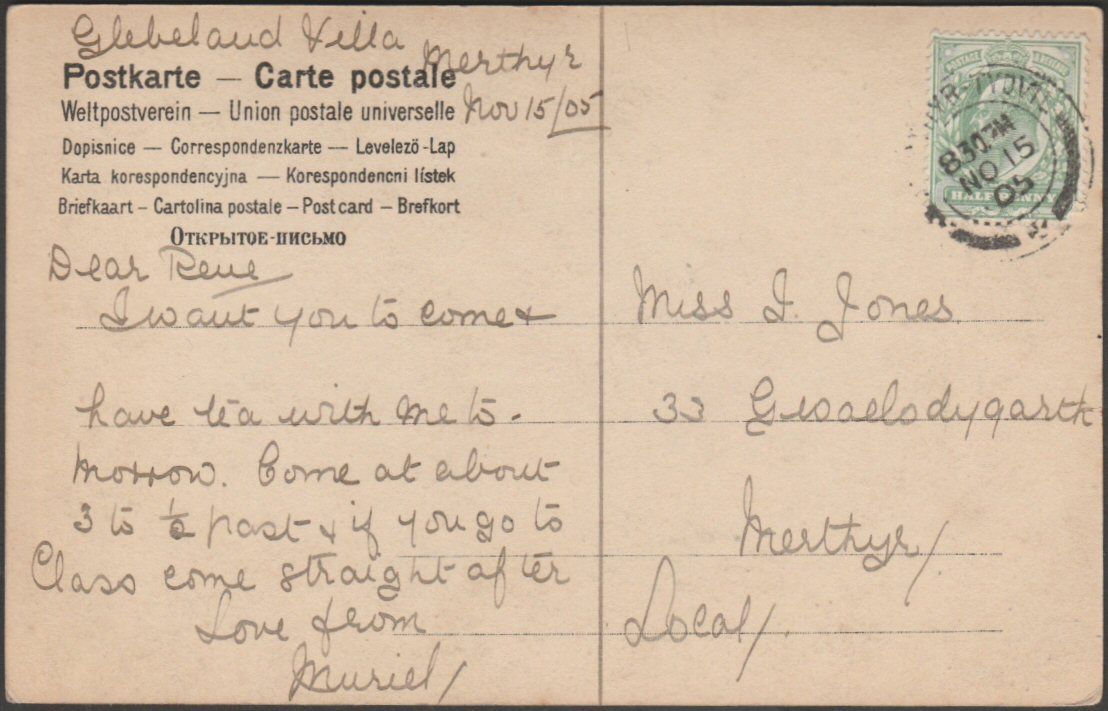 Glebeland Villa
Merthyr
Nov 15/05
Postkarte — Carte postale
Weltpostverein — Union postale universelle
Dopisnice — Correspondenzkarte — Levelező-Lap
Karta korespondencyjna — Korespondencni lístek
Briefkaart – Cartolina postale – Post card – Brefkort
Открытое-письмо
Dear Rene
I want you to come &
have tea with me to-
morrow. Come at about
3 to ½ past & if you go to
Class come straight after
Love from
Muriel/
POSTAGE
HALFPENNY
8 30 PM
NO 15
05
Miss I. Jones
33 Gwaelodygarth
Merthyr/
Local/.